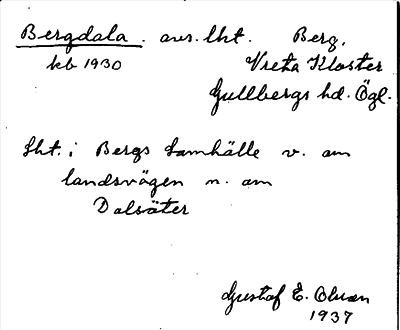 Bergdala . avs. lht. Berg,
kb 1930 Vreta Kloster
Gullbergs hd. Ögl.
Lht. i Bergs Samhälle v. om
landsvägen n. om
Dalsäter
Gustaf E. Olsson
1937